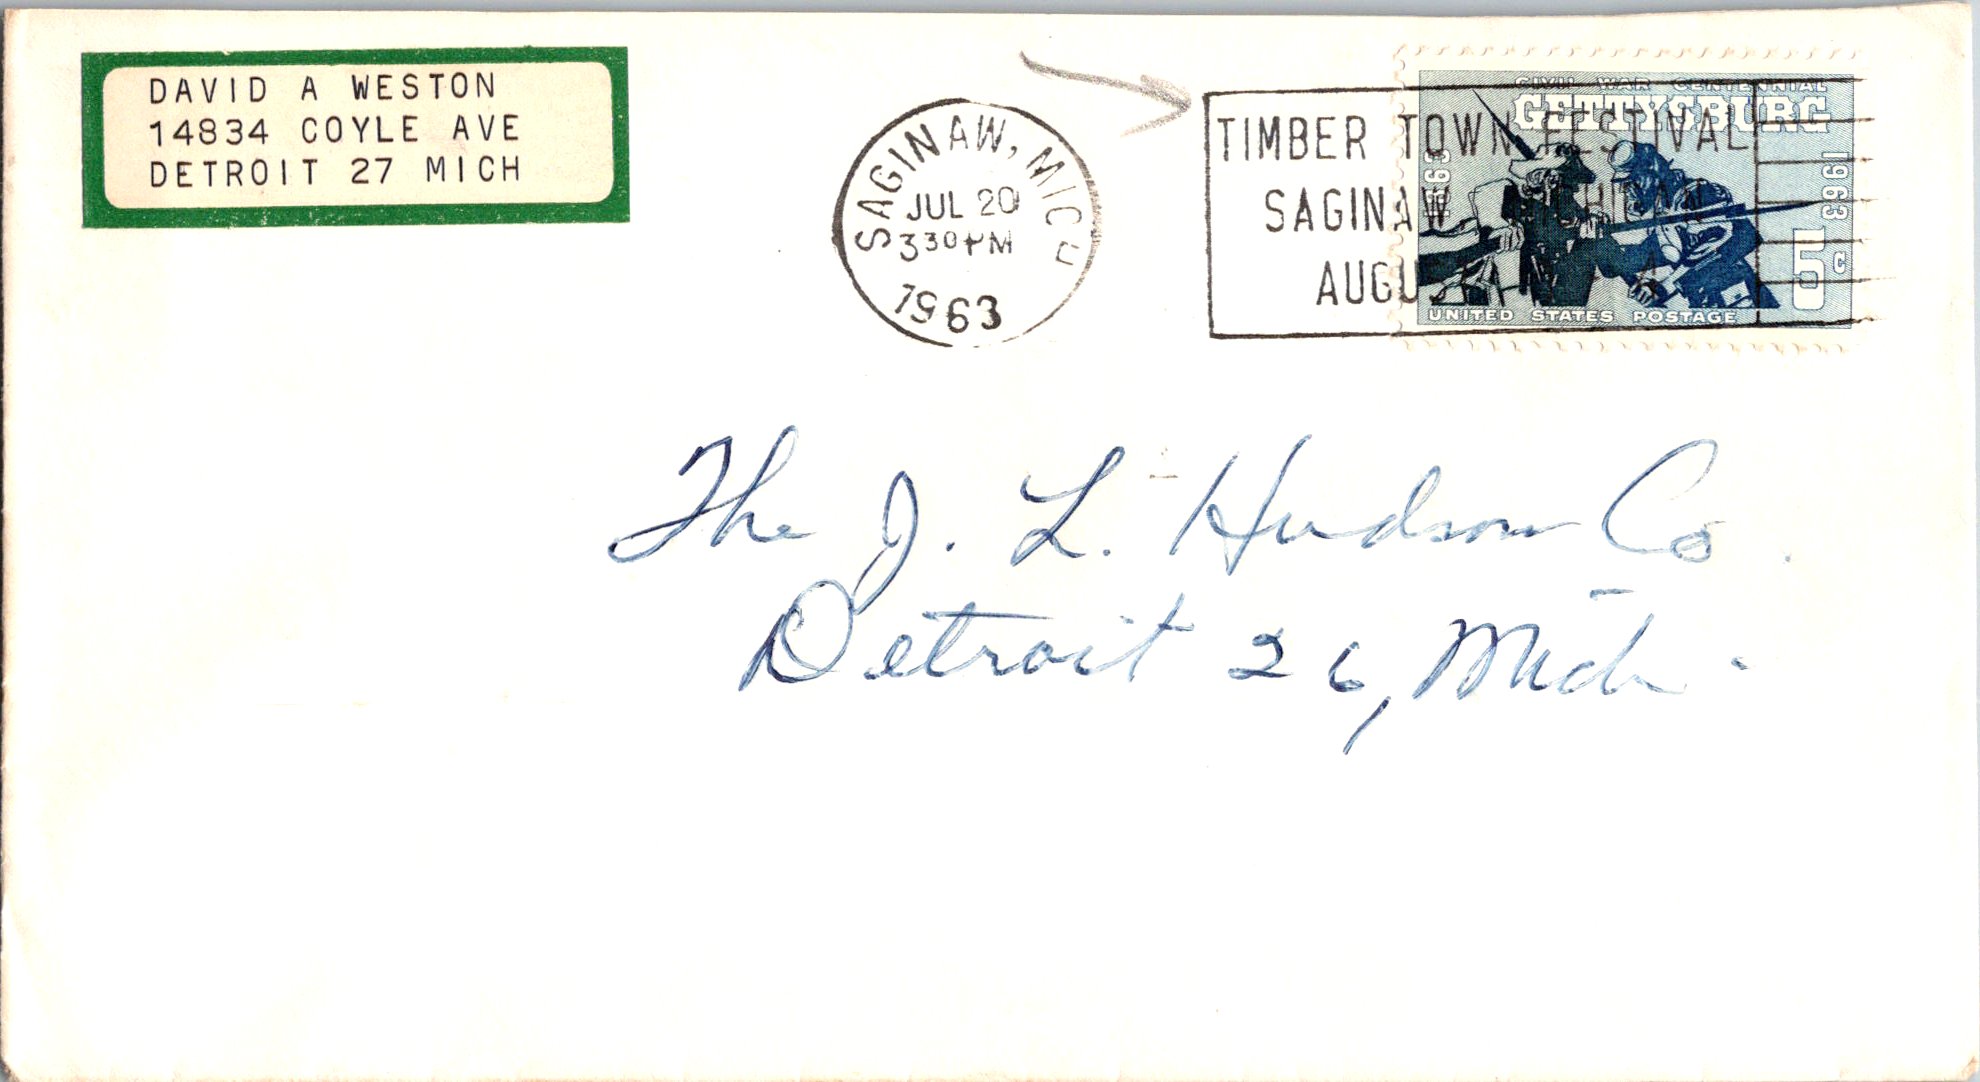 DAVID A WESTON
14834 COYLE AVE
DETROIT 27 MICH
SAGINAW, MICH
JUL 20
3 30 PM
1963
TIMBER TOWN FESTIVAL
SAGINAW
CIVIL WAR CENTENNIAL
GETTYSBURG
1863
1963
5c
UNITED STATES POSTAGE
The J. L. Hudson Co.
Detroit 26, Mich.